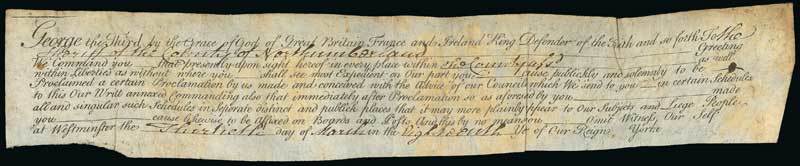 George the Third by the Grace of God of Great Britain France and Ireland King Defender of the Faith and so forth To the
Sheriff of the County of Northumberland Greeting
We Command you that presently upon sight hereof in every place within the County as well
within Liberties as without where you shall see most Expedient on Our part you Cause publickly and solemnly to be
Proclaimed a certain Proclamation by us made and conceived with the Advice of our Council which We send to you in certain Schedules
to this Our Writt annexed Commanding also that immediately after Proclamation so as aforesd by you made
all and singular such Schedules in seperate distinct and publick places that it may more plainly appear to our Subjects and Liege People
you cause likewise to be affixed on Boards and Posts And this by no means you Omit Witness Our Self
at Westminster the day of March in the Yr of Our Reign, Yorke